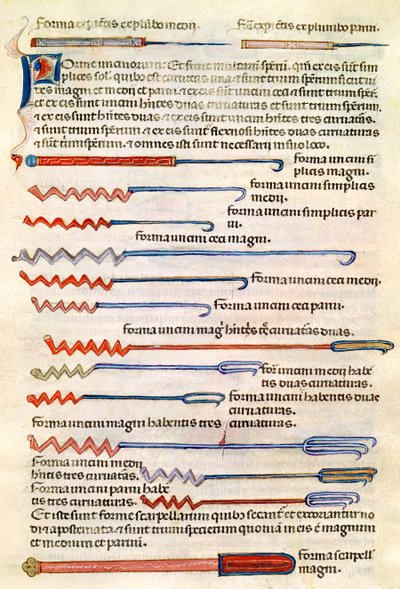 Forma expientis ex plumbo medii. Forma expientis ex plumbo parui.
Forme uncinorum. Et sunt multarum sperum. quia ex eis sunt sim
plices sol. quibus est curuatura una. et sunt trium sperum sicut ui
des magni et medii et parui. et ex eis sunt uncini ceci et sunt trium sper.
et ex eis sunt uncini hntes duas curuaturas et sunt trium sperum.
et ex eis hntes duas et ex eis uncini hntes tres curuatas.
et sunt trium sperum. et ex eis sunt flexuosi hntes duas curuaturas
et sunt trium sperum. et omnes isti sunt necessarii in suo loco.
forma uncini si
plicis magni.
forma uncini simplicis
medii.
forma uncini simplicis par
ui.
forma uncini ceci magni.
forma uncini ceci medii.
forma uncini ceci parui.
forma uncini magni hntis curuatas duas.
forma uncini medii habe
tis duas curuaturas.
forma uncini habentis duae
curuaturas.
forma uncini magni habentis tres curuaturas.
Forma uncini medii
hntis tres curuatas.
Forma uncini parui habe
tis tres curuatas.
Et iste sunt forme scarpellarum quibus secant et excoriantur no
di et apostemata et sunt trium specierum quoniam in eis est magnum
et medium et parui.
forma scarpelli
magni.